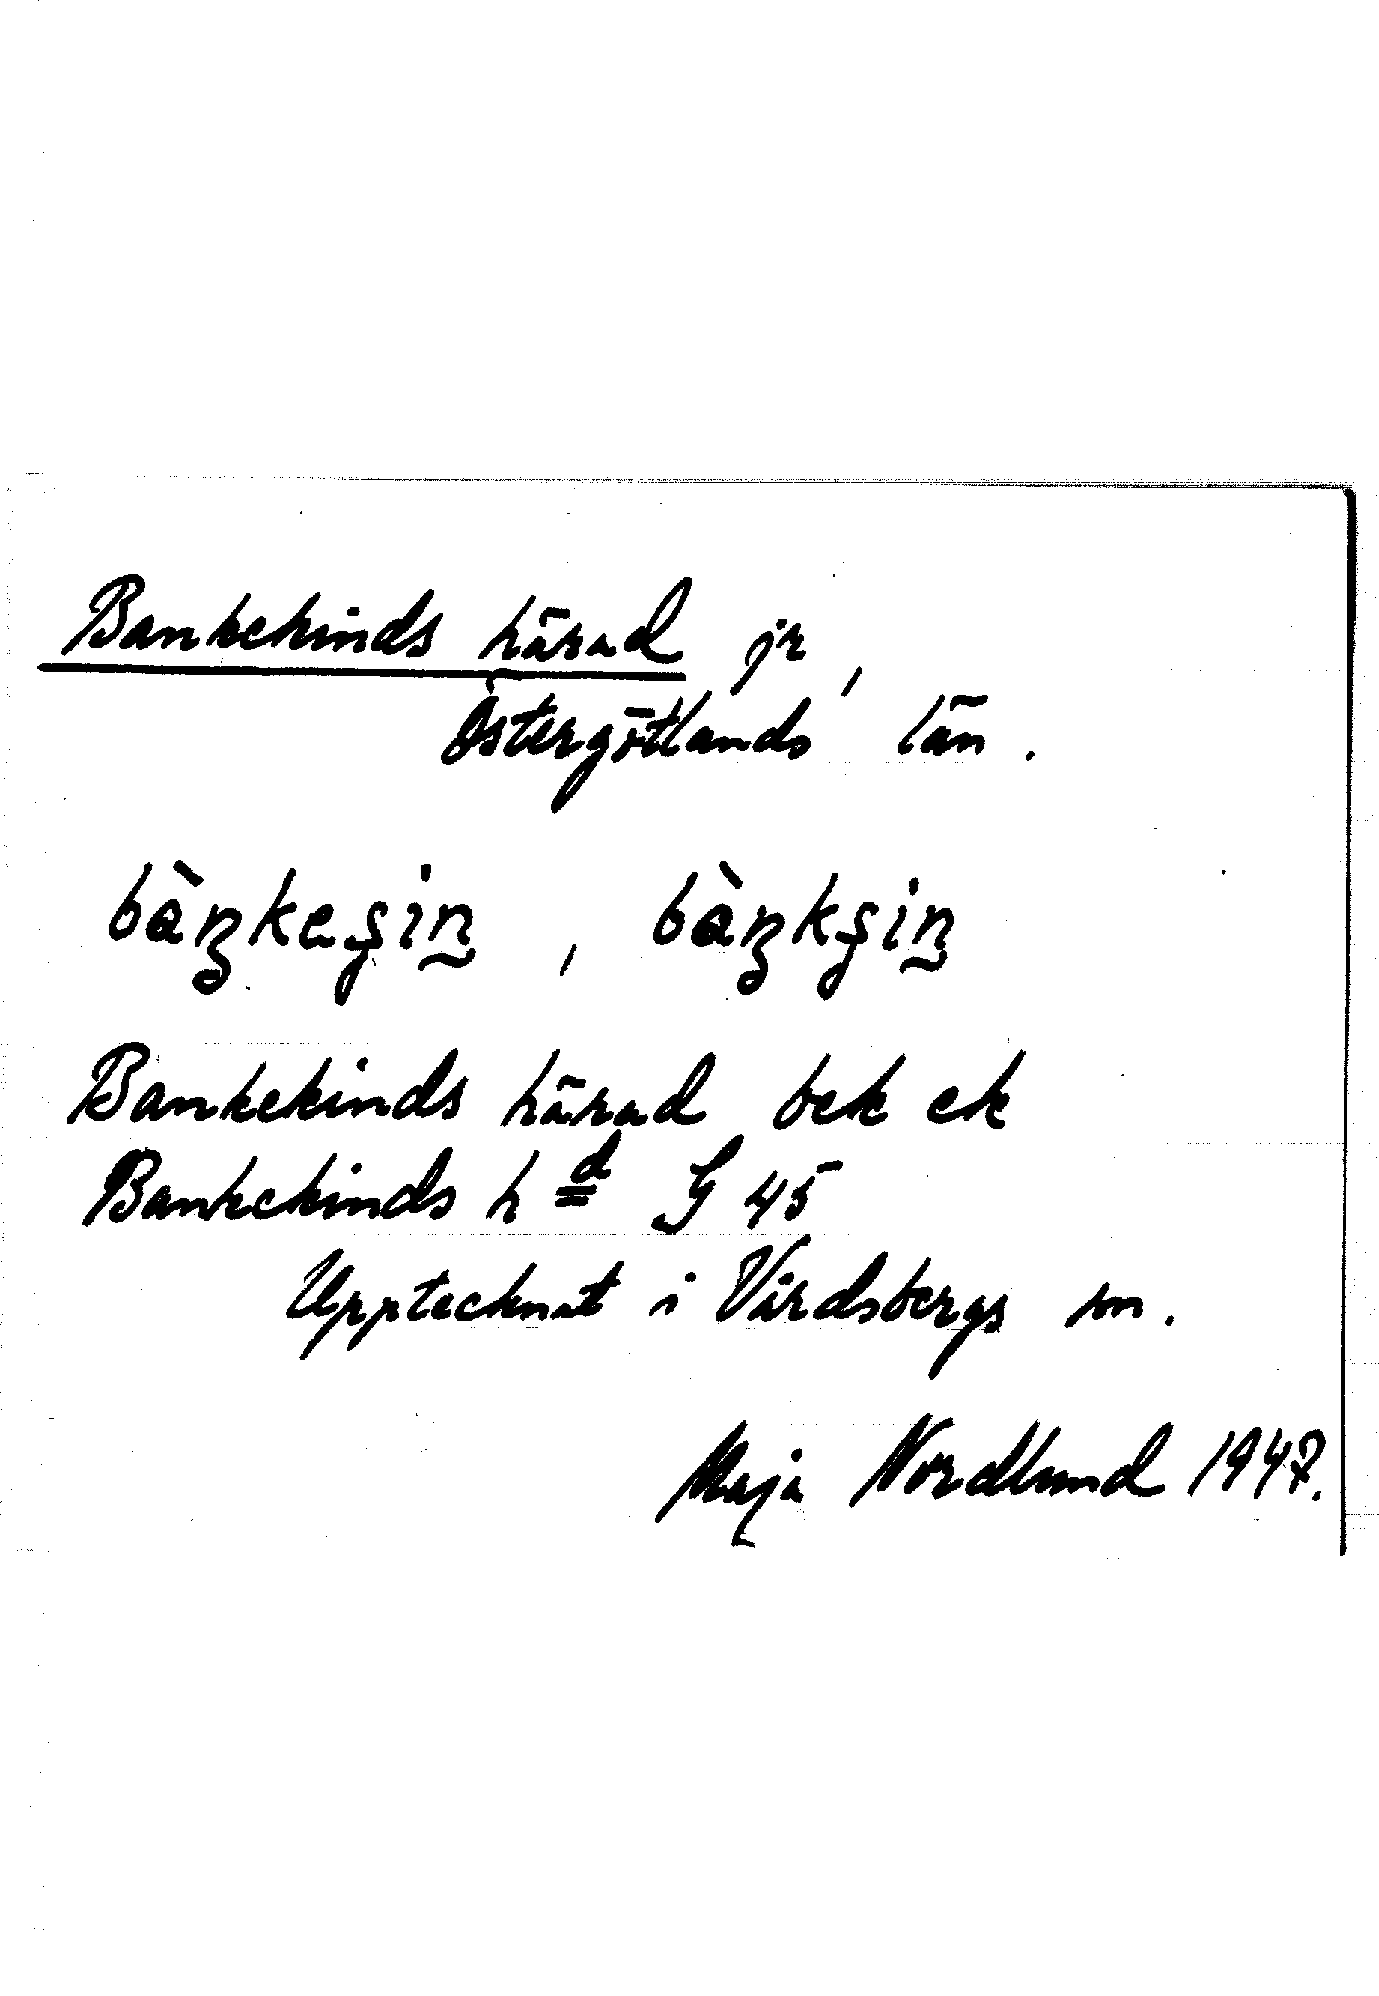 Bankekinds härad jr,
Östergötlands län.
bàŋkeʂin̰, bàŋkʂin̰
Bankekinds härad bek ek
Bankekinds hd G 45
Upptecknat i Vårdsbergs sn.
Maja Nordlund 1947.